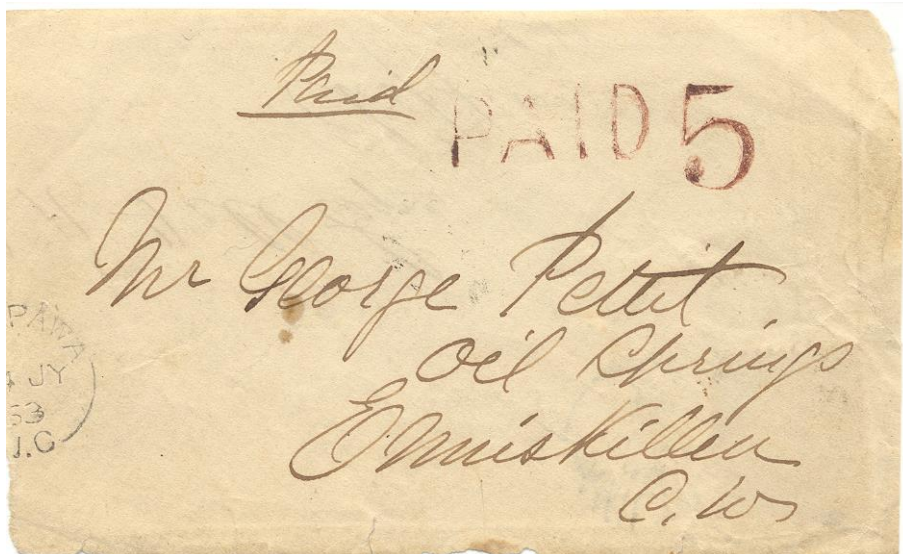 Paid
PAID 5
Mr George Pettit
Oil Springs
Enniskillen
C. W
PAWA
4 JY
63